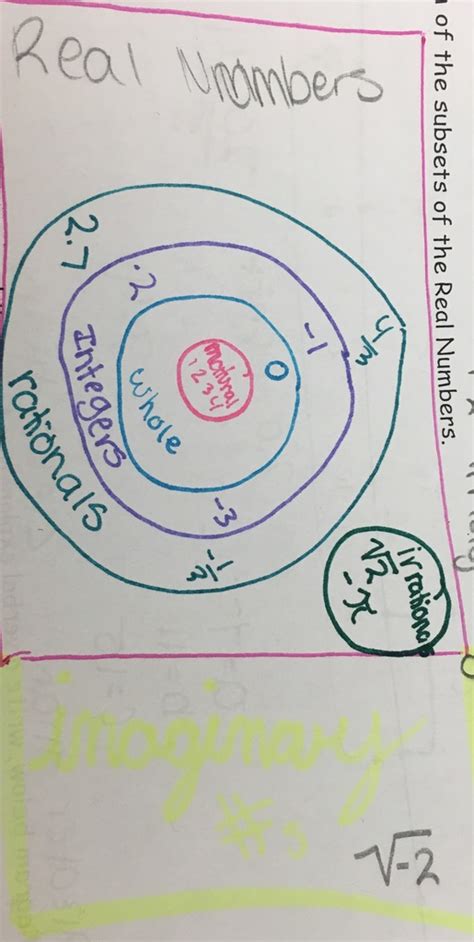 of the subsets of the Real Numbers.
Real Numbers
4/3
-1
0
natural
1 2 3 4
whole
-2
Integers
-3
2.7
rationals
-1/3
irrational
√2
-π
imaginary
#s
√-2